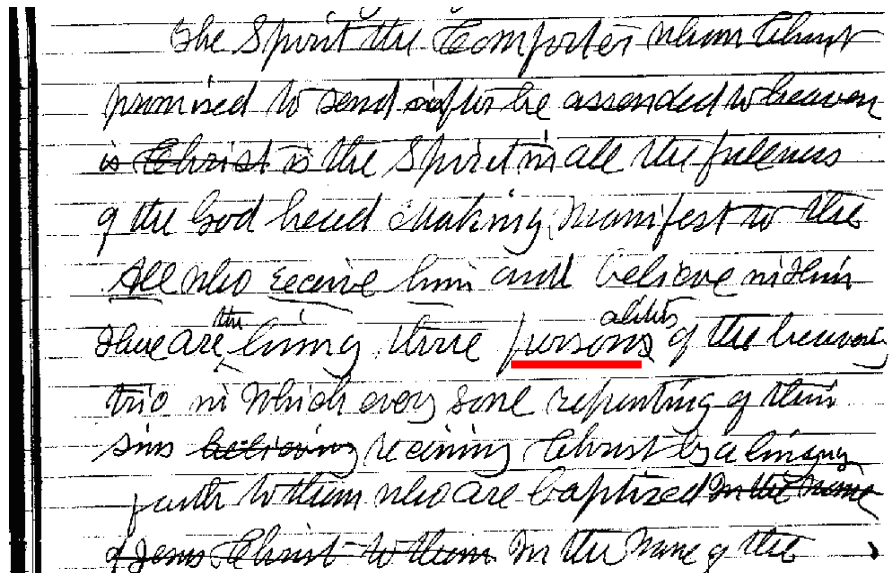 The Spirit the Comforter whom Christ
promised to send after he assended to heaven
is Christ is the Spirit in all the fullness
of the God head making manifest to the
All who receive him and believe in Him
the alities
There are living three persons of the heavenly
trio in which every soul repenting of their
sins believing receiving Christ by a living
faith to them who are baptized in the name
of Jesus Christ to them In the name of the